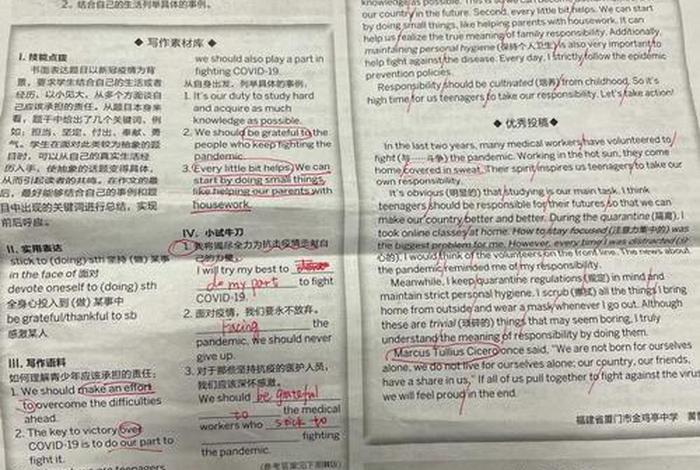 2. 结合自己的生活列举具体的事例。
◆ 写作素材库 ◆
I. 技能点拨
书面表达题目以新冠疫情为背
景，要求学生结合自己的生活或者
经历，以小见大，从多个方面谈自
己应该承担的责任。从题目本身来
看，题干中给出了几个关键词，例
如：担当、坚定、付出、奉献、勇
气。学生在面对此类较为抽象的题
目时，可以从自己的真实生活经
历入手，使抽象的话题变得具体，
从而引起读者的共鸣。在作文的最
后，最好能够结合自己的事例和题
目中出现的关键词进行总结，实现
前后呼应。
II. 实用表达
stick to (doing) sth 坚持（做）某事
in the face of 面对
devote oneself to (doing) sth
全身心投入到（做）某事中
be grateful/thanking to sb
感激某人
III. 写作语料
如何理解青少年应该承担的责任：
1. We should make an effort
to overcome the difficulties
ahead.
2. The key to victory over
COVID-19 is to do our part to
fight it.
teenagers
we should also play a part in
fighting COVID-19.
从自身出发，列举具体的事例：
1. It's our duty to study hard
and acquire as much
knowledge as possible.
2. We should be grateful to the
people who keep fighting the
pandemic.
3. Every little bit helps. We can
start by doing small things,
like helping our parents with
housework.
IV. 小试牛刀
1. 我将竭尽全力为抗击疫情贡献自
己的力量。
I will try my best to
do my part to fight
COVID-19.
2. 面对疫情，我们要永不放弃。
Facing the
pandemic, we should never
give up.
3. 对于那些坚持抗疫的医护人员，
我们应深怀感激。
We should be grateful
to the medical
workers who stick to
fighting
the pandemic.
(参考答案见下期
knowledge as possible. This
our country in the future. Second, every little bit helps. We can start
by doing small things, like helping parents with housework. It can
help us realize the true meaning of family responsibility. Additionally,
maintaining personal hygiene (保持个人卫生) is also very important to
help fight against the disease. Every day, I strictly follow the epidemic
prevention policies.
Responsibility should be cultivated (培养) from childhood. So it's
high time for us teenagers to take our responsibility. Let's take action!
◆ 优秀投稿 ◆
In the last two years, many medical workers have volunteered to
fight (与……斗争) the pandemic. Working in the hot sun, they come
home covered in sweat. Their spirit inspires us teenagers to take our
own responsibility.
It's obvious (明显的) that studying is our main task. I think
teenagers should be responsible for their futures so that we can
make our country better and better. During the quarantine (隔离), I
took online classes at home. How to stay focused (注意力集中的) was
the biggest problem for me. However, every time I was distracted (分
心的), I would think of the volunteers on the front line. The news about
the pandemic reminded me of my responsibility.
Meanwhile, I keep quarantine regulations (规定) in mind and
maintain strict personal hygiene. I scrub (擦拭) all the things I bring
home from outside and wear a mask whenever I go out. Although
these are trivial (琐碎的) things that may seem boring, I truly
understand the meaning of responsibility by doing them.
Marcus Tullius Cicero once said, "We are not born for ourselves
alone, we do not live for ourselves alone; our country, our friends,
have a share in us." If all of us pull together to fight against the virus,
we will feel proud in the end.
福建省厦门市金鸡亭中学